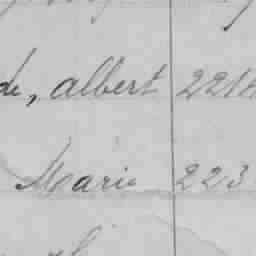 de, Albert 221
Marie 223